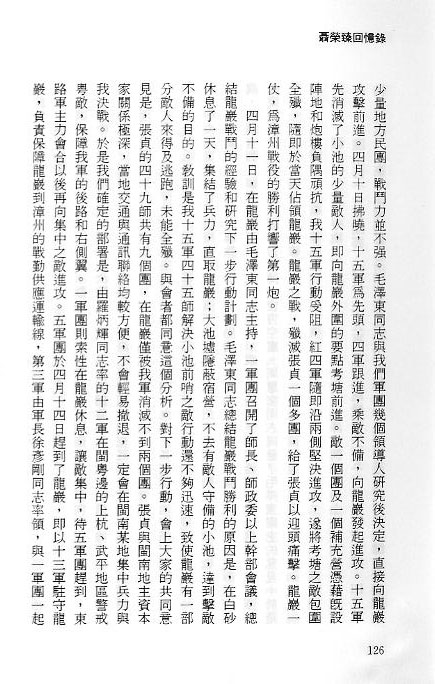 聶榮臻回憶錄
少量地方民團，戰鬥力並不强。毛澤東同志與我們軍團幾個領導人研究後決定，直接向龍巖
攻擊前進。四月十日拂曉，十五軍爲先頭，四軍跟進，乘敵不備，向龍巖發起進攻。十五軍
先消滅了小池的少量敵人，即向龍巖外圍的要點考塘前進。敵一個團及一個補充營憑藉旣設
陣地和炮樓負隅頑抗，我十五軍行動受阻，紅四軍隨即沿兩側堅決進攻，遂將考塘之敵包圍
全殲，隨即於當天佔領龍巖。龍巖之戰，殲滅張貞一個多團，給了張貞以迎頭痛擊。龍巖一
仗，爲漳州戰役的勝利打響了第一炮。
四月十一日，在龍巖由毛澤東同志主持，一軍團召開了師長、師政委以上幹部會議，總
結龍巖戰鬥的經驗和研究下一步行動計劃。毛澤東同志總結龍巖戰鬥勝利的原因是，在白砂
休息了一天，集結了兵力，直取龍巖；大池墟隱蔽宿營，不去有敵人守備的小池，達到擊敵
不備的目的。敎訓是我十五軍四十五師解決小池前哨之敵行動還不夠迅速，致使龍巖有一部
分敵人來得及逃跑，未能全殲。與會者都同意這個分析。對下一步行動，會上大家的共同意
見是，張貞的四十九師共有九個團，在龍巖僅被我軍消滅不到兩個團。張貞與閩南地主資本
家關係極深，當地交通與通訊聯絡均較方便，不會輕易撤退，一定會在閩南某地集中兵力與
我決戰。於是我們確定的部署是，由羅炳輝同志率的十二軍在閩粵邊的上杭、武平地區警戒
粵敵，保障我軍的後路和右側翼。一軍團則索性在龍巖休息，讓敵集中，待五軍團趕到，東
路軍主力會合以後再向集中之敵進攻。五軍團於四月十四日趕到了龍巖，即以十三軍駐守龍
巖，負責保障龍巖到漳州的戰勤供應運輸線，第三軍由軍長徐彥剛同志率領，與一軍團一起
126